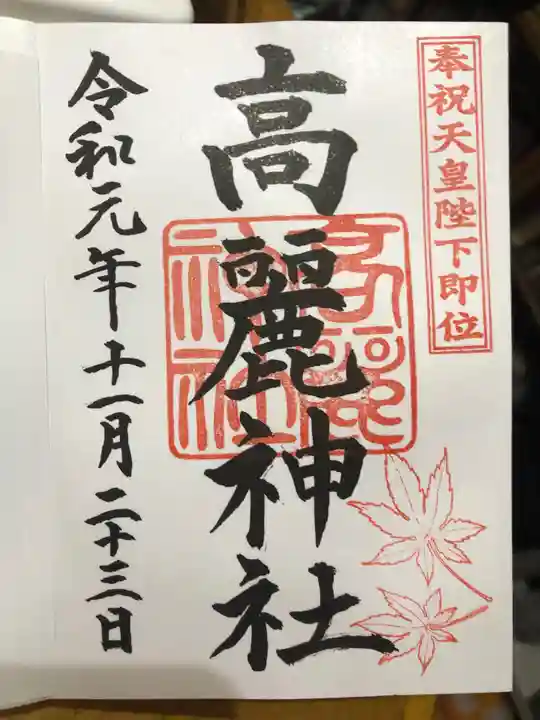 奉祝天皇陛下即位
高麗神社
高麗神社
令和元年十一月二十三日